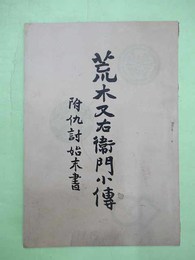 荒木又右衛門小傳
附仇討始末書